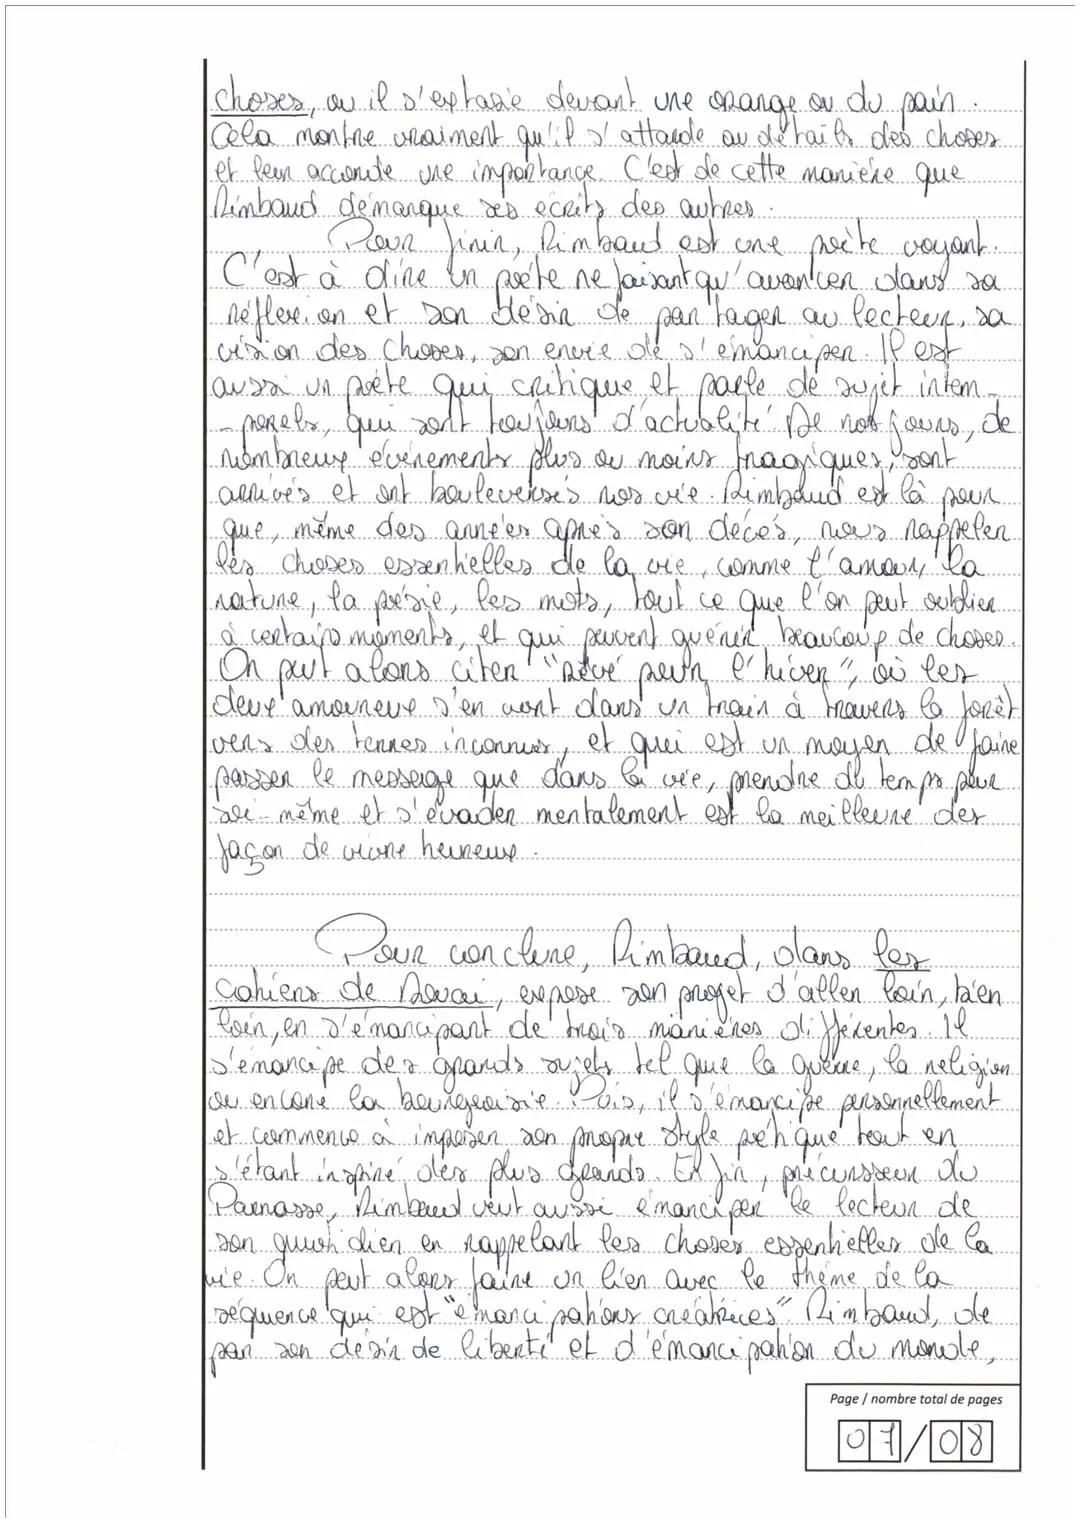 choses, ou il s'extasie devant une orange ou du pain.
Cela montre vraiment qu'il s'attarde au détails des choses
et leur accorde une importance. C'est de cette manière que
Rimbaud démarque ses écrits des autres.
Pour finir, Rimbaud est une poète voyant.
C'est à dire un poète ne faisant qu'avancer dans sa
réflexion et son désir de partager au lecteur, sa
vision des choses, son envie de s'émanciper. Il est
aussi un poète qui critique et parle de sujet intem-
-porels, qui sont toujours d'actualité. De nos jours, de
nombreux événements plus ou moins tragiques, sont
arrivés et ont bouleversés nos vie. Rimbaud est là pour
que, même des années après son décès, nous rappeler
les choses essentielles de la vie, comme l'amour, la
nature, la poésie, les mots, tout ce que l'on peut oublier
à certains moments, et qui peuvent guérir beaucoup de choses.
On peut alors citer "rêvé pour l'hiver", où les
deux amoureux s'en vont dans un train à travers la forêt
vers des terres inconnues, et qui est un moyen de faire
passer le message que dans la vie, prendre du temps pour
soi-même et s'évader mentalement est la meilleure des
façon de vivre heureux.
Pour conclure, Rimbaud, dans les
Cahiers de Douai, expose son projet d'aller loin, bien
loin, en s'émancipant de trois manières différentes. Il
s'émancipe des grands sujets tel que la guerre, la religion
ou encore la bourgeoisie. Puis, il s'émancipe personnellement
et commence à imposer son propre style poétique tout en
s'étant inspiré des plus grands. En fin, précursseur du
Parnasse, Rimbaud veut aussi émanciper le lecteur de
son quotidien en rappelant les choses essentielles de la
vie. On peut alors faire un lien avec le thème de la
séquence qui est "émancipations créatrices". Rimbaud, de
par son désir de liberté et d'émancipation du monde,
Page / nombre total de pages
07/08